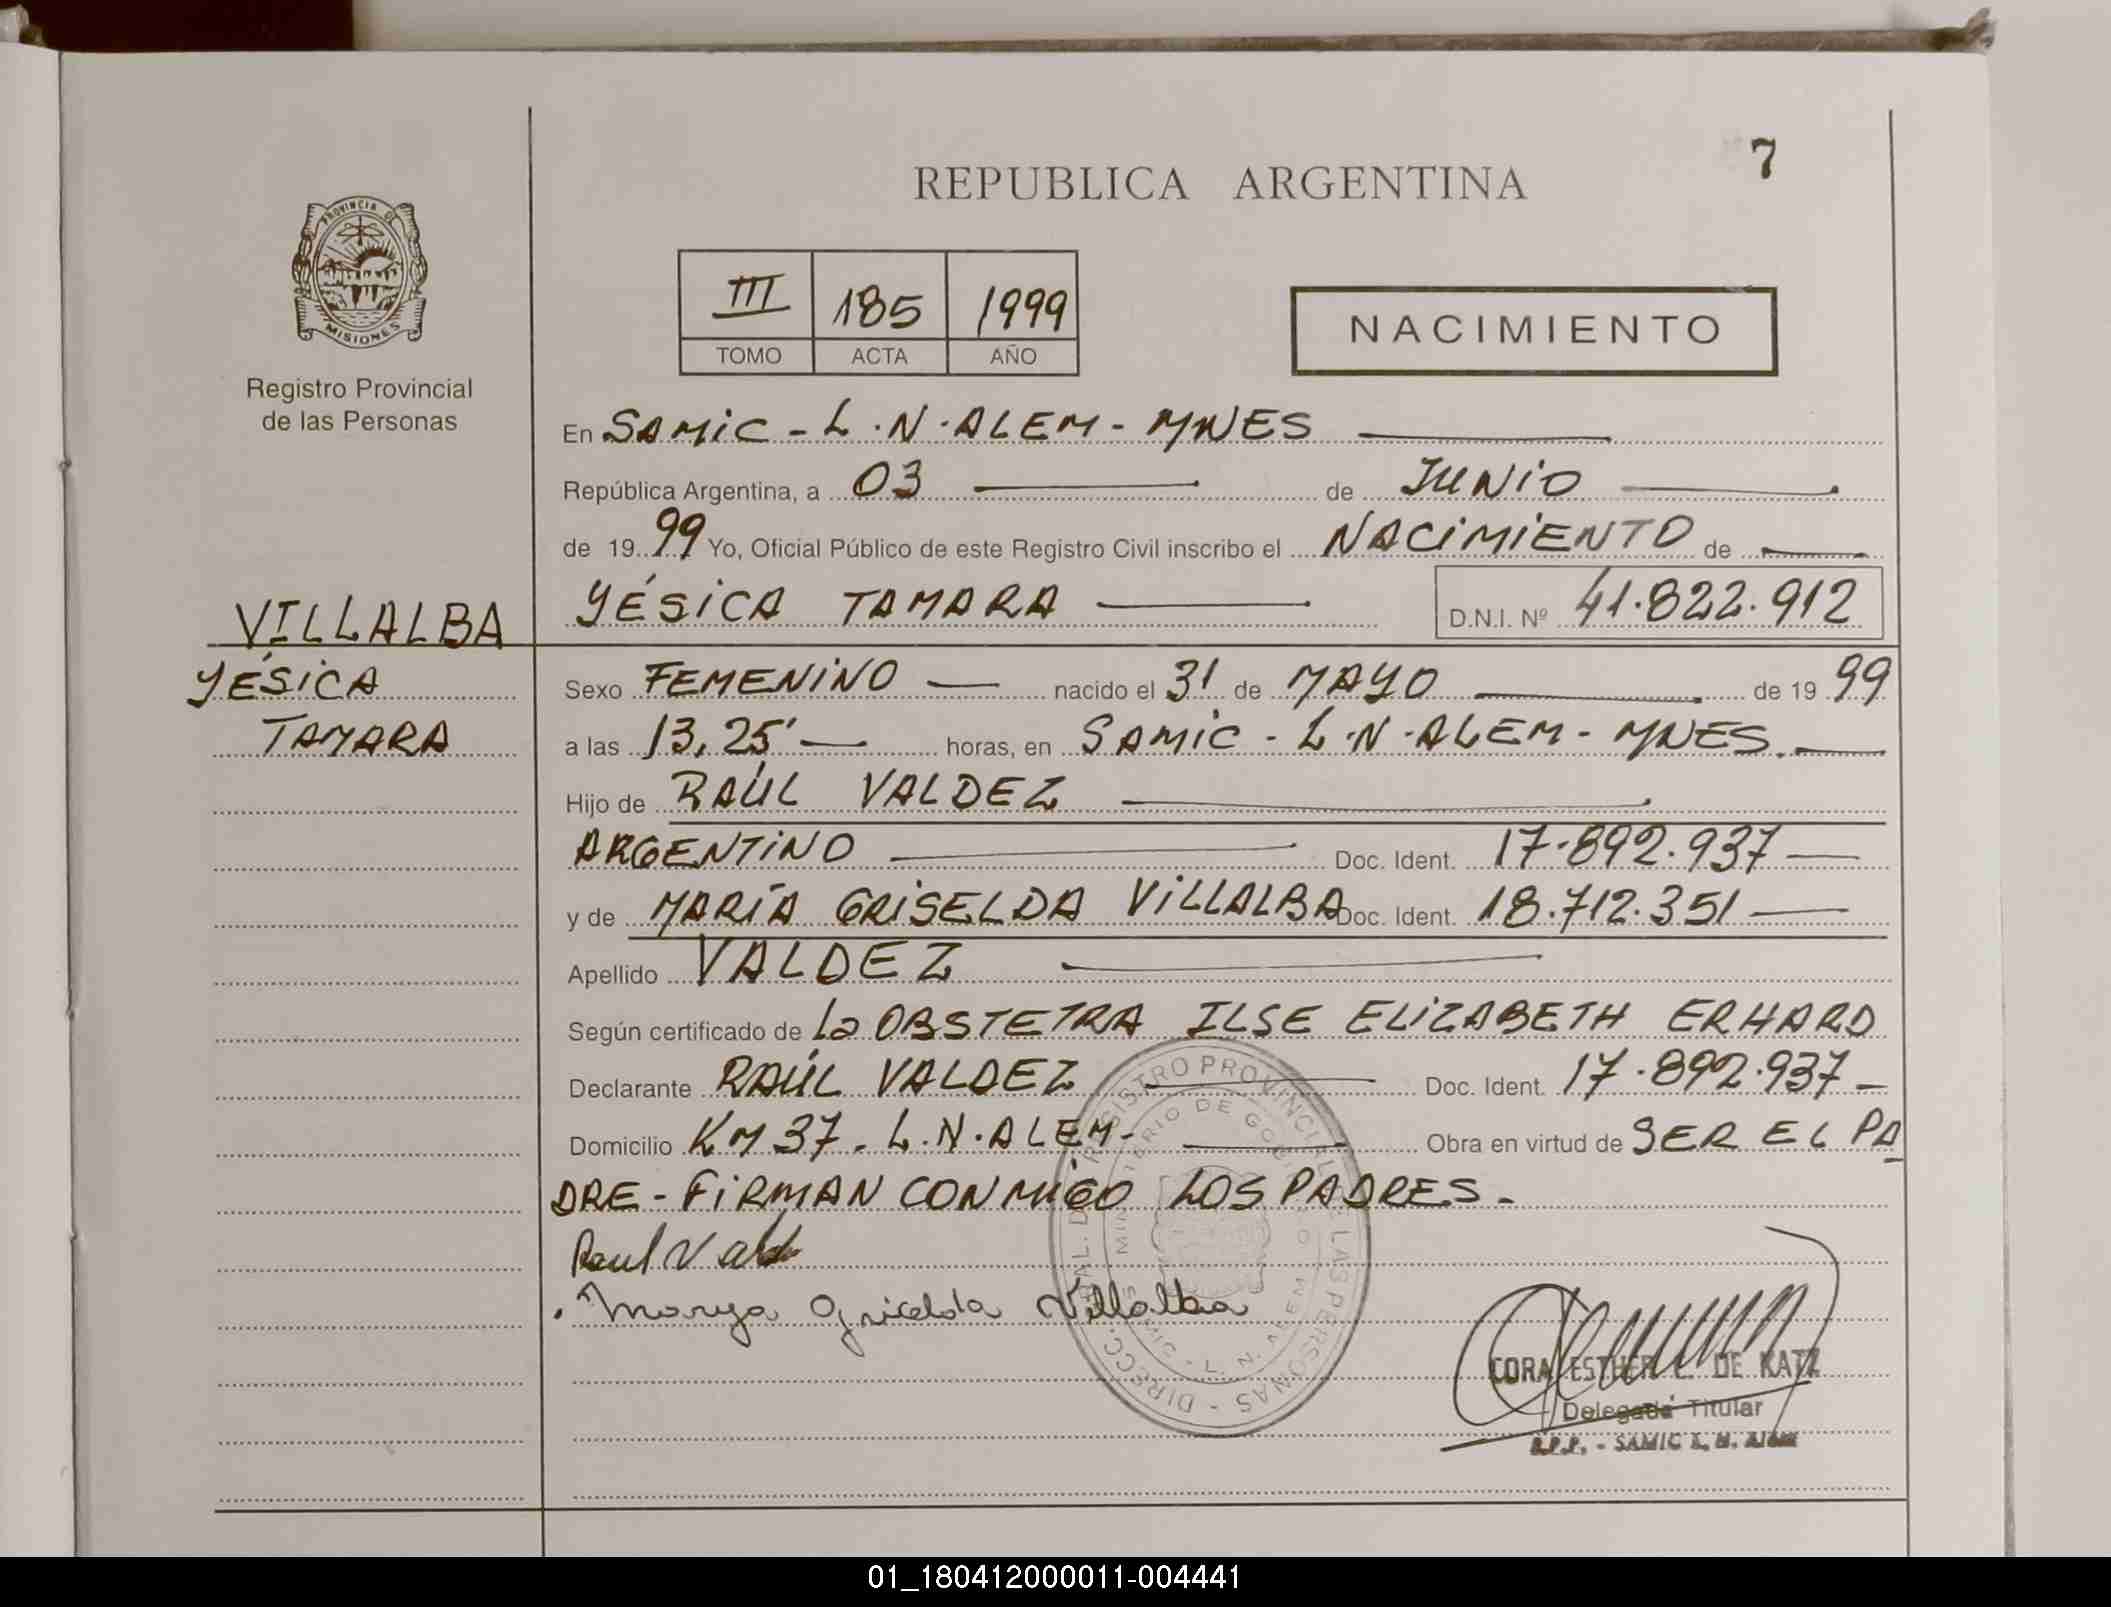 7
REPUBLICA ARGENTINA
PROVINCIA DE
MISIONES
Registro Provincial
de las Personas
III 185 1999
TOMO ACTA AÑO
NACIMIENTO
En SAMIC - L.N.ALEM - MNES
República Argentina, a 03 de JUNIO
de 1999 Yo, Oficial Público de este Registro Civil inscribo el NACIMIENTO de
YÉSICA TAMARA D.N.I. Nº 41.822.912
VILLALBA
YÉSICA
TAMARA
Sexo FEMENINO nacido el 31 de MAYO de 1999
a las 13,25' horas, en SAMIC - L.N.ALEM - MNES.
Hijo de RAÚL VALDEZ
ARGENTINO Doc. Ident. 17.892.937
y de MARÍA GRISELDA VILLALBA Doc. Ident. 18.712.351
Apellido VALDEZ
Según certificado de la OBSTETRA ILSE ELIZABETH ERHARD
Declarante RAÚL VALDEZ Doc. Ident. 17.892.937
Domicilio KM 37 - L.N.ALEM - Obra en virtud de SER EL PA
DRE - FIRMAN CONMIGO LOS PADRES -
Raul Vald
Marya Gricelda Villalba
DIRECC. GRAL. DE REGISTRO PROVINCIAL DE LAS PERSONAS
MINISTERIO DE GOBIERNO
L. N. ALEM
CORA ESTHER L. DE KATZ
Delegada Titular
R.P.P. - SAMIC L. N. Alem
01_180412000011-004441